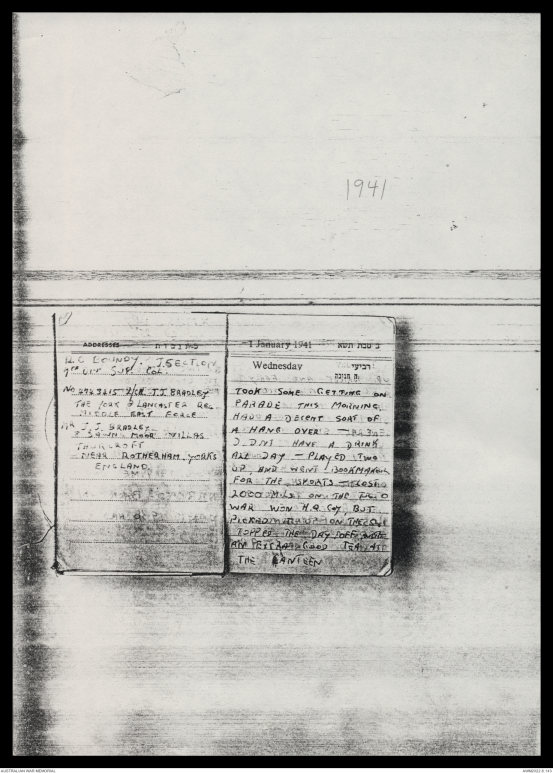 1941
ADDRESSES
H.C LOUNDY. J. SECTION
7th DIV SUP. COL.
No 4743615 L/CPL J.J. BRADLEY
THE YORK & LANCASTER REG.
MIDDLE EAST FORCE
MR J.J. BRADLEY
MOOR VILLAS
THURCROFT
NEAR ROTHERHAM, YORKS
ENGLAND
1 January 1941 ב טבת תשא
Wednesday רביעי
ח חנוכה
TOOK SOME GETTING ON
PARADE THIS MORNING,
HAD A DECENT SORT OF
A HANG OVER -
DIDNT HAVE A DRINK
ALL DAY - PLAYED TWO
UP, AND WENT BOOKMAKER
FOR THE SPORTS - LOST
2000 MILS ON THE TUG O
WAR WON H.Q. COY, BUT
PICKED IT UP ON THE
TOPPED THE DAY OFF WITH
GOOD TEA AT
THE CANTEEN
AUSTRALIAN WAR MEMORIAL